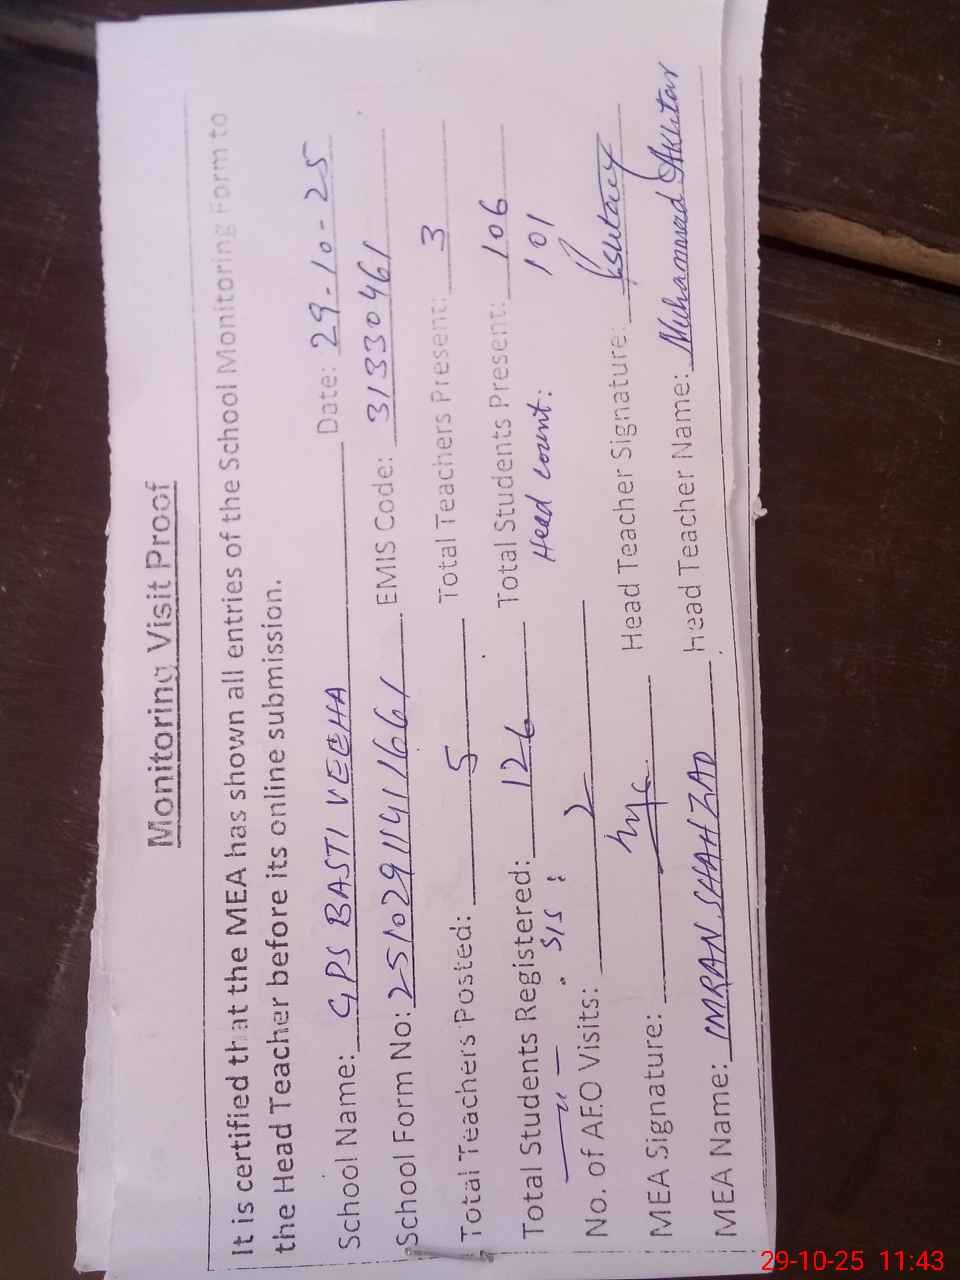 Monitoring Visit Proof
It is certified that the MEA has shown all entries of the School Monitoring Form to
the Head Teacher before its online submission.
School Name: GPS BASTI VEEHA Date: 29-10-25
School Form No: 25102911411661 EMIS Code: 31330461
Total Teachers Posted: 5 Total Teachers Present: 3
Total Students Registered: 126 Total Students Present: 106
— 11 — SIS: Head count: 101
No. of AEO Visits: 2
MEA Signature: Head Teacher Signature:
MEA Name: IMRAN SHAHZAD head Teacher Name: Muhammad Akhtar
29-10-25 11:43